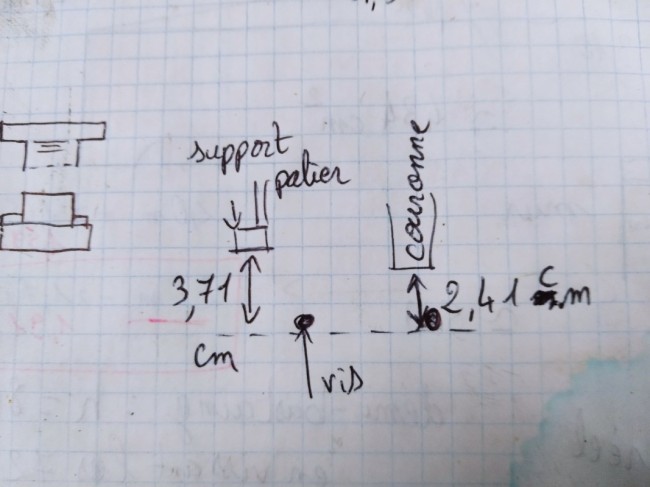 support
palier
couronne
3,71
2,41 cm
cm
vis